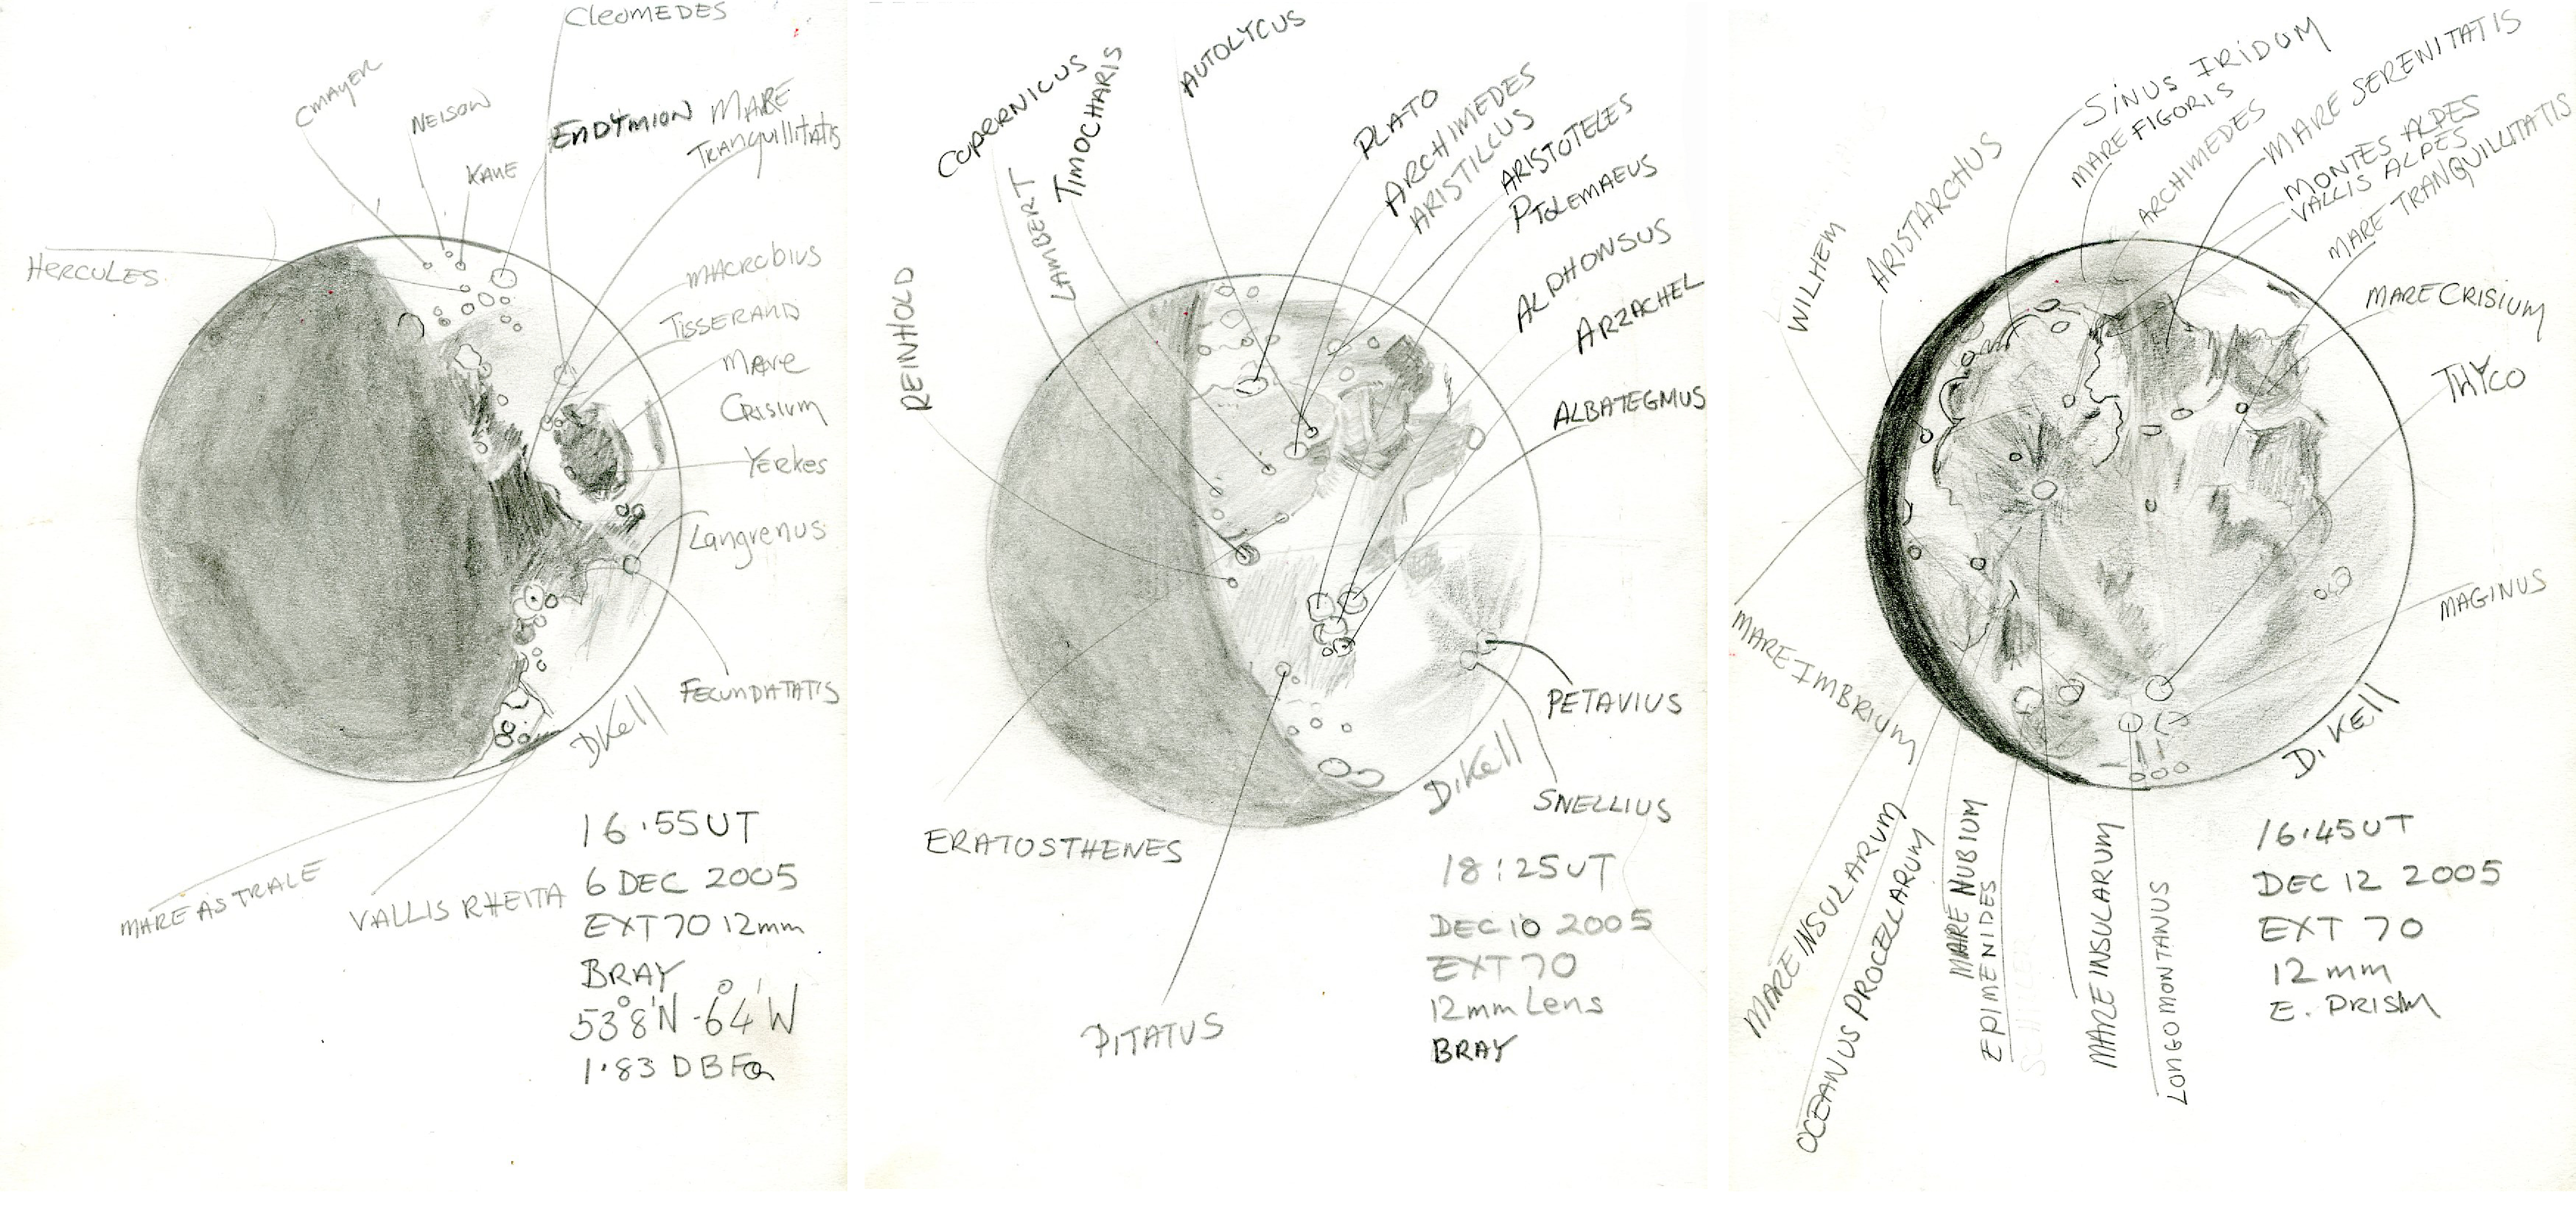 CLEOMEDES
CMAYER
NEISON
KANE
ENDYMION
MARE
TRANQUILLITATIS
HERCULES
MACROBIUS
TISSERAND
MARE
CRISIUM
YERKES
Langrenus
FECUNDATATIS
DKell
MARE ASTRALE
VALLIS RHEITA
16.55UT
6 DEC 2005
EXT 70 12mm
BRAY
53°8'N -6°4'W
AUTOLYCUS
COPERNICUS
TIMOCHARIS
LAMBERT
REINHOLD
PLATO
ARCHIMEDES
ARISTILCUS
ARISTOTELES
PTOLEMAEUS
ALPHONSUS
ARZACHEL
ALBATEGMUS
PETAVIUS
SNELLIUS
D.Kell
ERATOSTHENES
PITATUS
18:25UT
DEC 10 2005
EXT 70
12mm Lens
BRAY
SINUS IRIDUM
MARE FIGORIS
ARCHIMEDES
MARE SERENITATIS
MONTES ALPES
VALLIS ALPES
MARE TRANQUILLITATIS
WILHEM
ARISTARCHUS
MARE CRISIUM
THYCO
MAGINUS
D. KELL
MARE IMBRIUM
MARE INSULARUM
OCEANUS PROCELLARUM
MARE NUBIUM
EPIMENIDES
MARE INSULARUM
LONGOMONTANUS
16.45UT
DEC 12 2005
EXT 70
12mm
E. PRISM